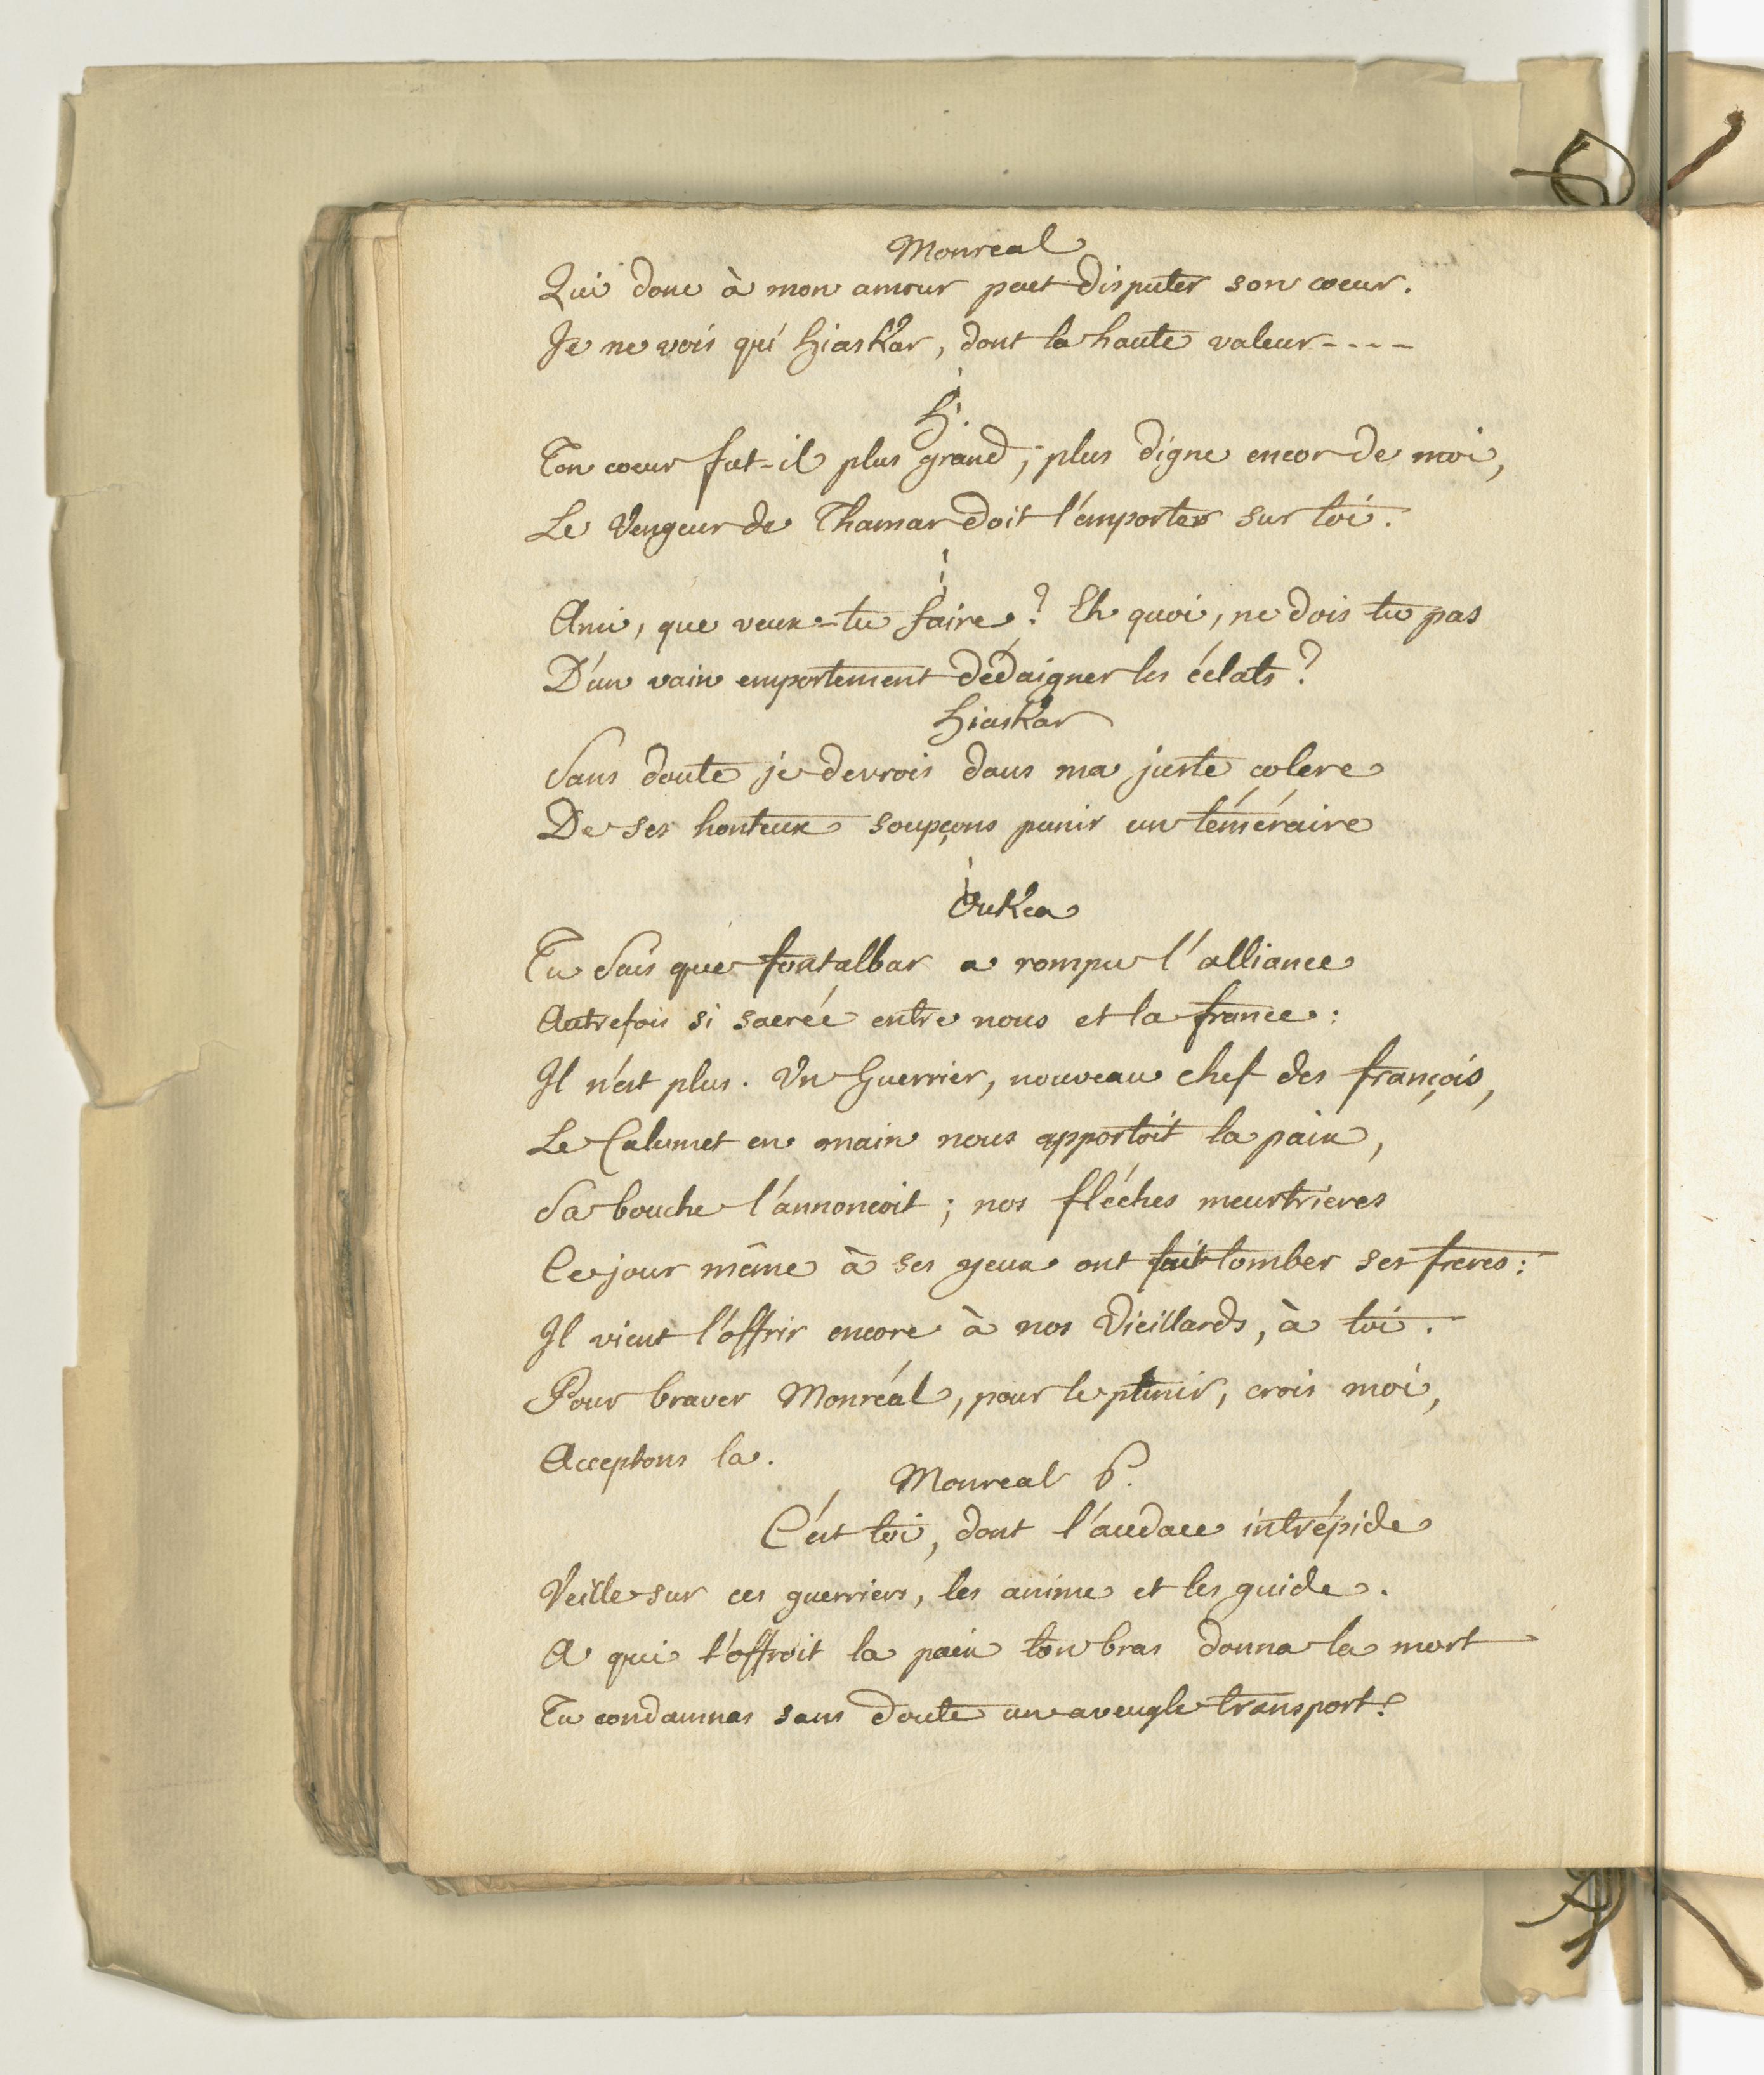 Monreal
Qui donc à mon amour peut disputer son coeur.
Je ne vois qu'hiaskar, dont la haute valeur----
h.
Ton coeur fut-il plus grand, plus digne encor de moi,
Le Vengeur de Thamar doit l'emporter sur toi.
Ami, que veux-tu faire? Eh quoi, ne dois tu pas
D'un vain emportement dédaigner les éclats?
hiaskar
Sans doute je devrois dans ma juste colere
De ses honteux soupçons punir un téméraire
Oukea
Tu Sais que fontalbar a rompu l'alliance
Autrefois si sacrée entre nous et la france:
Il n'est plus. Un Guerrier, nouveau chef des françois,
Le Calumet en main nous apportoit la paix,
Sa bouche l'annoncoit; nos fléches meurtrieres
Ce jour même à ses yeux ont fait tomber ses freres:
Il vient l'offrir encore à nos Vieillards, à toi.
Pour braver Monréal, pour le punir, crois moi,
Acceptons la.
Monreal P.
C'est toi, dont l'audace intrépide
Veille sur ces guerriers, les anime et les guide.
A qui t'offroit la paix ton bras donna la mort
Tu condamnas sans doute un aveugle transport?